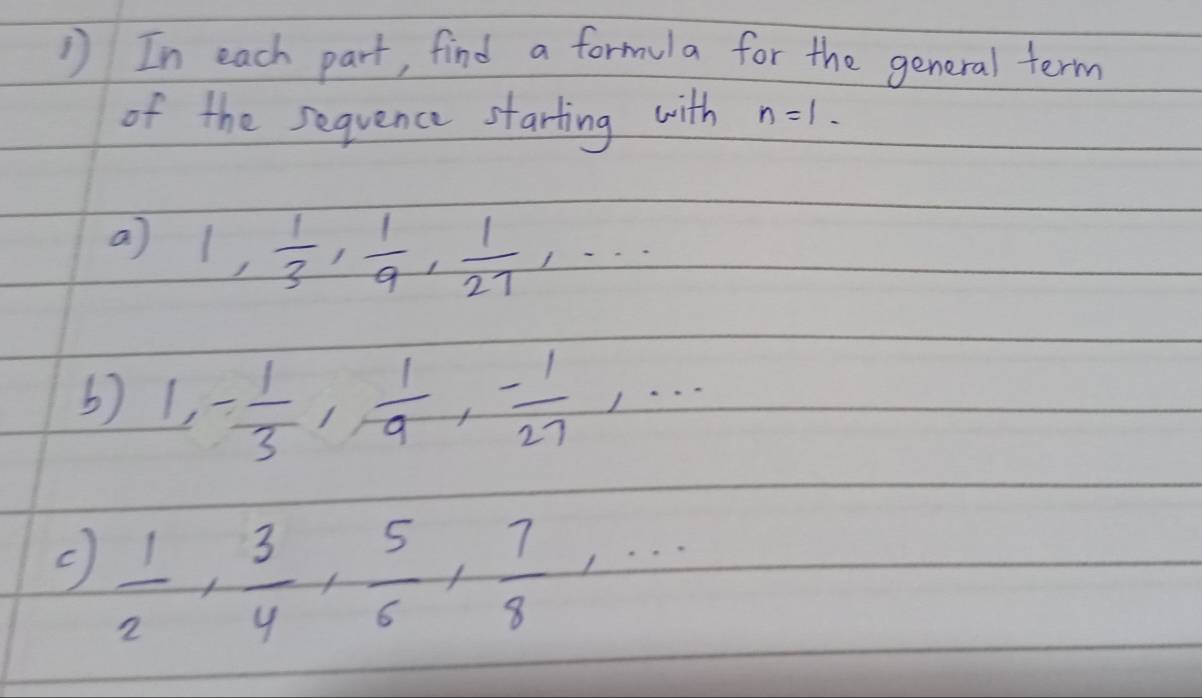 1) In each part, find a formula for the general term
of the sequence starting with n=1.
a) 1, 1/3, 1/9, 1/27, ...
b) 1, -1/3, 1/9, -1/27, ...
c) 1/2, 3/4, 5/6, 7/8, ...